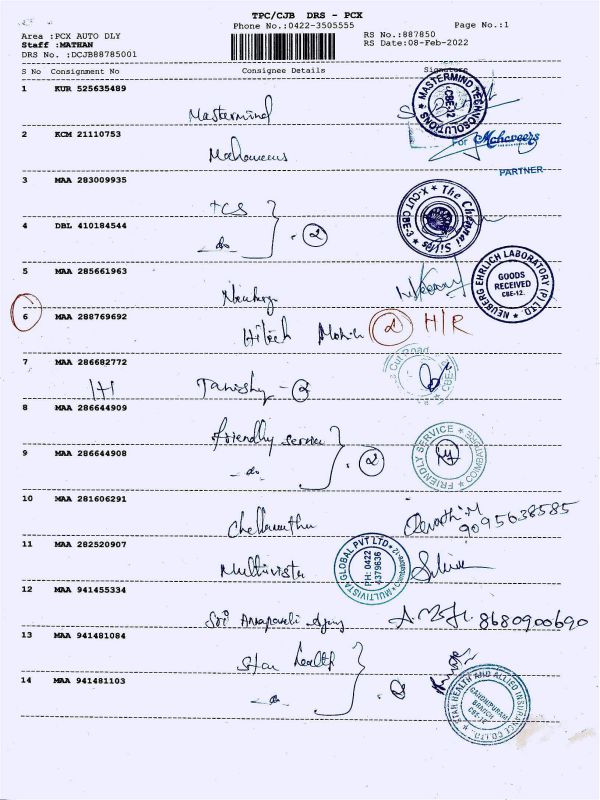 TPC/CJB DRS - PCX
Phone No.:0422-3505555 Page No.:1
Area :PCX AUTO DLY RS No.:887850
Staff :MATHAN RS Date:08-Feb-2022
DRS No. :DCJB88785001
S No Consignment No Consignee Details Signature
1 KUR 525635489
Mastermind
MASTERMIND TECHNOSOLUTIONS CBE-12
2 KCM 21110753
For Mahaveers
PARTNER
3 MAA 283009935
TCS
The Chennai Silks X-CUT CBE-3
4 DBL 410184544
do 2
5 MAA 285661963
NEUBERG EHRLICH LABORATORY (P) LTD.
GOODS RECEIVED CBE-12.
6 MAA 288769692
Hitech 2 H/R
7 MAA 286682772
2
Cut Road
8 MAA 286644909
friendly service
9 MAA 286644908
do 2
FRIENDLY SERVICE COIMBATORE
10 MAA 281606291
Chellamuthu 9095638585
11 MAA 282520907
Multivista
MULTIVISTA GLOBAL PVT LTD
PH: 0422 4379636
12 MAA 941455334
Sri 8680900690
13 MAA 941481084
Star health
14 MAA 941481103
do 2
STAR HEALTH AND ALLIED INSURANCE CO.LTD.
GANDHIPURAM BRANCH CBE-12